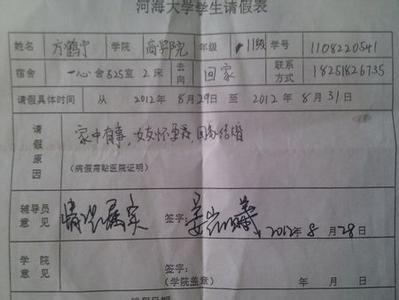 河海大学学生请假表
姓名 方鹤宁 学院 商学院 年级 11级 学号 1108220541
宿舍 一心舍525室2床 去向 回家 联系方式 18251826735
请假具体时间 从 2012年8月29日 至 2012年8月31日
请假原因 家中有事,女友怀孕,回家结婚
(病假需贴医院证明)
辅导员意见 情况属实 签字: 2012年8月28日
学院意见 签字: (学院盖章) 年 月 日